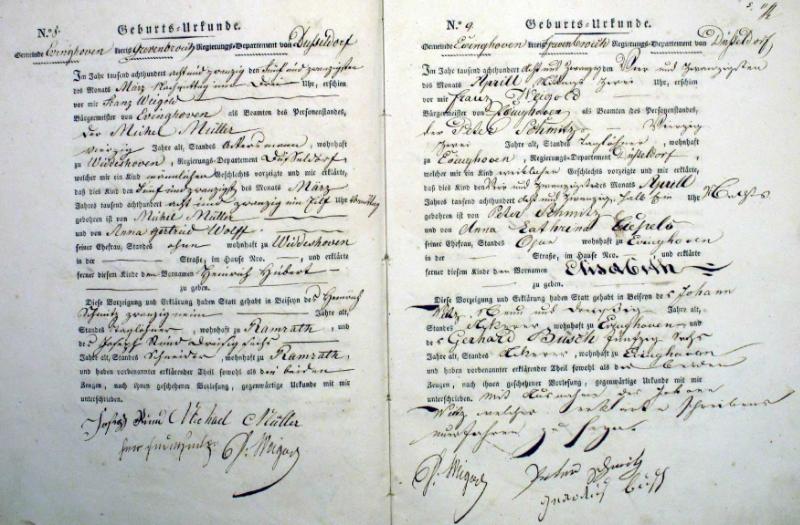 N.º 5. Geburts-Urkunde.
Gemeinde Evinghoven Kreis Grevenbroich Regierungs-Departement von Düsseldorf
Im Jahr tausend achthundert acht und zwanzig den Fünf und zwanzigsten
des Monats März Nachmittag um Drei Uhr, erschien
vor mir Franz Weigold
Bürgermeister von Evinghoven als Beamten des Personenstandes,
Der Michel Müller
vierzig Jahre alt, Standes Ackersmann, wohnhaft
zu Widdeshoven, Regierungs-Departement Düsseldorf
welcher mir ein Kind männlichen Geschlechts vorzeigte und mir erklärte,
daß dies Kind den Fünf und zwanzigst des Monats März
Jahres tausend achthundert acht und zwanzig um Zilf Uhr Vormittag
gebohren ist von Michel Müller
und von Anna Gertrud Wolff
seiner Ehefrau, Standes ohne wohnhaft zu Widdeshoven
in der Straße, im Hause Nro. und erklärte
ferner diesem Kinde den Vornamen Heinrich Hubert
zu geben.
Diese Vorzeigung und Erklärung haben Statt gehabt in Beiseyn des Heinrich
Schmitz zwanzig neun Jahre alt,
Standes Taglöhner, wohnhaft zu Ramrath und
des Joseph Künd Dreißig sechs
Jahre alt, Standes Schneider, wohnhaft zu Ramrath,
und haben vorbenannter erklärender Theil sowohl als die beiden
Zeugen, nach ihnen geschehener Verlesung, gegenwärtige Urkunde mit mir
unterschrieben.
Josef Künd Michael Müller
F. Weigold
N.º 9. Geburts-Urkunde.
Gemeinde Evinghoven Kreis Grevenbroich Regierungs-Departement von Düsseldorf
Im Jahr tausend achthundert Acht und Zwanzig den Vier und Zwanzigsten
des Monats Aprill Zwei Uhr, erschien
vor mir Franz Weigold
Bürgermeister von Evinghoven als Beamten des Personenstandes,
der Peter Schmitz Vierzig
zwei Jahre alt, Standes Taglöhner wohnhaft
zu Evinghoven, Regierungs-Departement Düsseldorf
welcher mir ein Kind weiblichen Geschlechts vorzeigte und mir erklärte,
daß dies Kind den Vier und Zwanzigsten des Monats Aprill
Jahres tausend achthundert Acht und Zwanzig, halb Ein Uhr Nachts
gebohren ist von Peter Schmitz
und von Anna Kathrina
seiner Ehefrau, Standes wohnhaft zu Evinghoven
in der Straße, im Hause Nro. und erklärte
ferner diesem Kinde den Vornamen Elisabeth
zu geben.
Diese Vorzeigung und Erklärung haben Statt gehabt in Beiseyn des Johann
und Dreyßig Jahre alt,
Standes Ackerer, wohnhaft zu Evinghoven und
des Gerhard Busch fünfzig Sechs
Jahre alt, Standes Ackerer, wohnhaft zu Evinghoven
und haben vorbenannter erklärender Theil sowohl als die Beiden
Zeugen, nach ihnen geschehener Verlesung, gegenwärtige Urkunde mit mir
unterschrieben. Mit Ausnahme des Johann
welcher erklärte Schreibens
unerfahren zu seyn.
F. Weigold Peter Schmitz
Busch